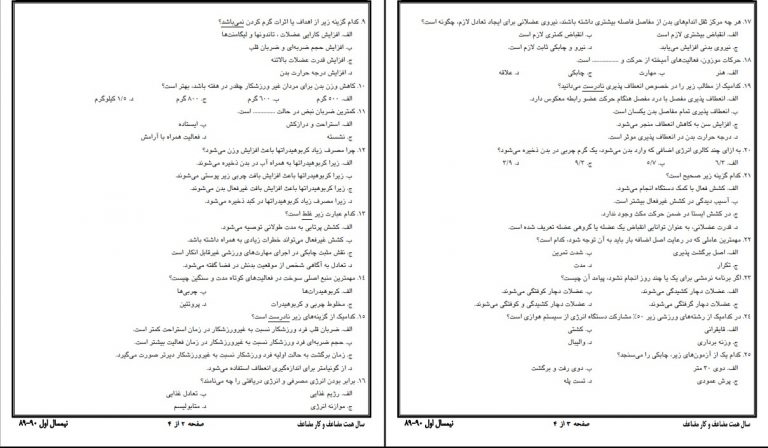 ۹. کدام گزینه زیر از اهداف یا اثرات گرم کردن نمی‌باشد؟
الف. افزایش کارایی عضلات ، تاندونها و لیگامنت‌ها
ب. افزایش حجم ضربه‌ای و ضربان قلب
ج. افزایش قدرت عضلات بالاتنه
د. افزایش درجه حرارت بدن
۱۰. کاهش وزن بدن برای مردان غیر ورزشکار چقدر در هفته باشد، بهتر است؟
الف. ۵۰۰ گرم ب. ۶۰۰ گرم ج. ۸۰۰ گرم د. ۱/۵ کیلوگرم
۱۱. کمترین ضربان نبض در حالت ............ است.
الف. استراحت و درازکش ب. ایستاده
ج. نشسته د. فعالیت همراه با آرامش
۱۲. چرا مصرف زیاد کربوهیدراتها باعث افزایش وزن می‌شود؟
الف. زیرا کربوهیدراتها به همراه آب در بدن ذخیره می‌شوند.
ب. زیرا کربوهیدراتها باعث افزایش بافت چربی زیر پوستی می‌شوند.
ج. زیرا کربوهیدراتها باعث افزایش بافت غیرفعال بدن می‌شوند.
د. زیرا مصرف زیاد کربوهیدراتها در کبد ذخیره می‌شود.
۱۳. کدام عبارت زیر غلط است؟
الف. کشش پرتابی به مدت طولانی توصیه می‌شود.
ب. کشش غیرفعال می‌تواند خطرات زیادی به همراه داشته باشد.
ج. نقش مثبت چابکی در اجرای مهارت‌های ورزشی غیرقابل انکار است
د. تعادل به آگاهی شخص از موقعیت بدنش در فضا گفته می‌شود.
۱۴. مهمترین منبع اصلی سوخت در فعالیت‌های کوتاه مدت و سنگین چیست؟
الف. کربوهیدراتها ب. چربی‌ها
ج. مخلوط چربی و کربوهیدرات د. پروتئین
۱۵. کدامیک از گزینه‌های زیر نادرست است؟
الف. ضربان قلب فرد ورزشکار نسبت به غیرورزشکار در زمان استراحت کمتر است.
ب. حجم ضربه‌ای فرد ورزشکار نسبت به غیرورزشکار در زمان فعالیت بیشتر است.
ج. زمان برگشت به حالت اولیه فرد ورزشکار نسبت به غیرورزشکار دیرتر صورت می‌گیرد.
د. از گونیامتر برای اندازه‌گیری انعطاف استفاده می‌شود.
۱۶. برابر بودن انرژی مصرفی و انرژی دریافتی را چه می‌نامند؟
الف. رژیم غذایی ب. تعادل غذایی
ج. موازنه انرژی د. متابولیسم
سال همت مضاعف و کار مضاعف صفحه ۲ از ۴ نیمسال اول ۹۰-۸۹
۱۷. هر چه مرکز ثقل اندام‌های بدن از مفاصل فاصله بیشتری داشته باشند، نیروی عضلانی برای ایجاد تعادل لازم، چگونه است؟
الف. انقباض بیشتری لازم است ب. انقباض کمتری لازم است
ج. نیروی بدنی افزایش می‌یابد. د. نیرو و چابکی ثابت لازم است.
۱۸. حرکات موزون، فعالیت‌های آمیخته از حرکت و ............. است.
الف. هنر ب. مهارت ج. چابکی د. علاقه
۱۹. کدامیک از مطالب زیر را در خصوص انعطاف پذیری نادرست می‌دانید؟
الف. انعطاف پذیری مفصل با درد مفصل هنگام حرکت عضو رابطه معکوس دارد.
ب. انعطاف پذیری تمام مفاصل بدن یکسان است.
ج. افزایش سن به کاهش انعطاف منجر می‌شود.
د. درجه حرارت بدن در انعطاف پذیری موثر است.
۲۰. به ازای چند کالری انرژی اضافی که وارد بدن می‌شود، یک گرم چربی در بدن ذخیره می‌شود؟
الف. ۶/۳ ب. ۵/۷ ج. ۹/۳ د. ۳/۹
۲۱. کدام گزینه زیر صحیح است؟
الف. کشش فعال با کمک دستگاه انجام می‌شود.
ب. آسیب دیدگی در کشش غیرفعال بیشتر است.
ج. در کشش ایستا در ضمن حرکت مکث وجود ندارد.
د. قدرت عضلانی، به عنوان توانایی انقباض یک عضله یا گروهی عضله تعریف شده است.
۲۲. مهمترین عاملی که در رعایت اصل اضافه بار باید به آن توجه شود، کدام است؟
الف. اصل برگشت پذیری ب. شدت تمرین
ج. تکرار د. مدت
۲۳. اگر برنامه نرمشی برای یک یا چند روز انجام نشود، پیامد آن چیست؟
الف. عضلات دچار کشیدگی می‌شوند. ب. عضلات دچار کوفتگی می‌شوند.
ج. عضلات دچار گرفتگی می‌شوند. د. عضلات دچار کشیدگی و کوفتگی می‌شوند.
۲۴. در کدامیک از رشته‌های ورزشی زیر ۵۰٪ مشارکت دستگاه انرژی از سیستم هوازی است؟
الف. قایقرانی ب. کشتی
ج. وزنه برداری د. والیبال
۲۵. کدام یک از آزمون‌های زیر، چابکی را می‌سنجد؟
الف. دوی ۳۰ متر ب. دوی رفت و برگشت
ج. پرش عمودی د. تست پله
سال همت مضاعف و کار مضاعف صفحه ۳ از ۴ نیمسال اول ۹۰-۸۹